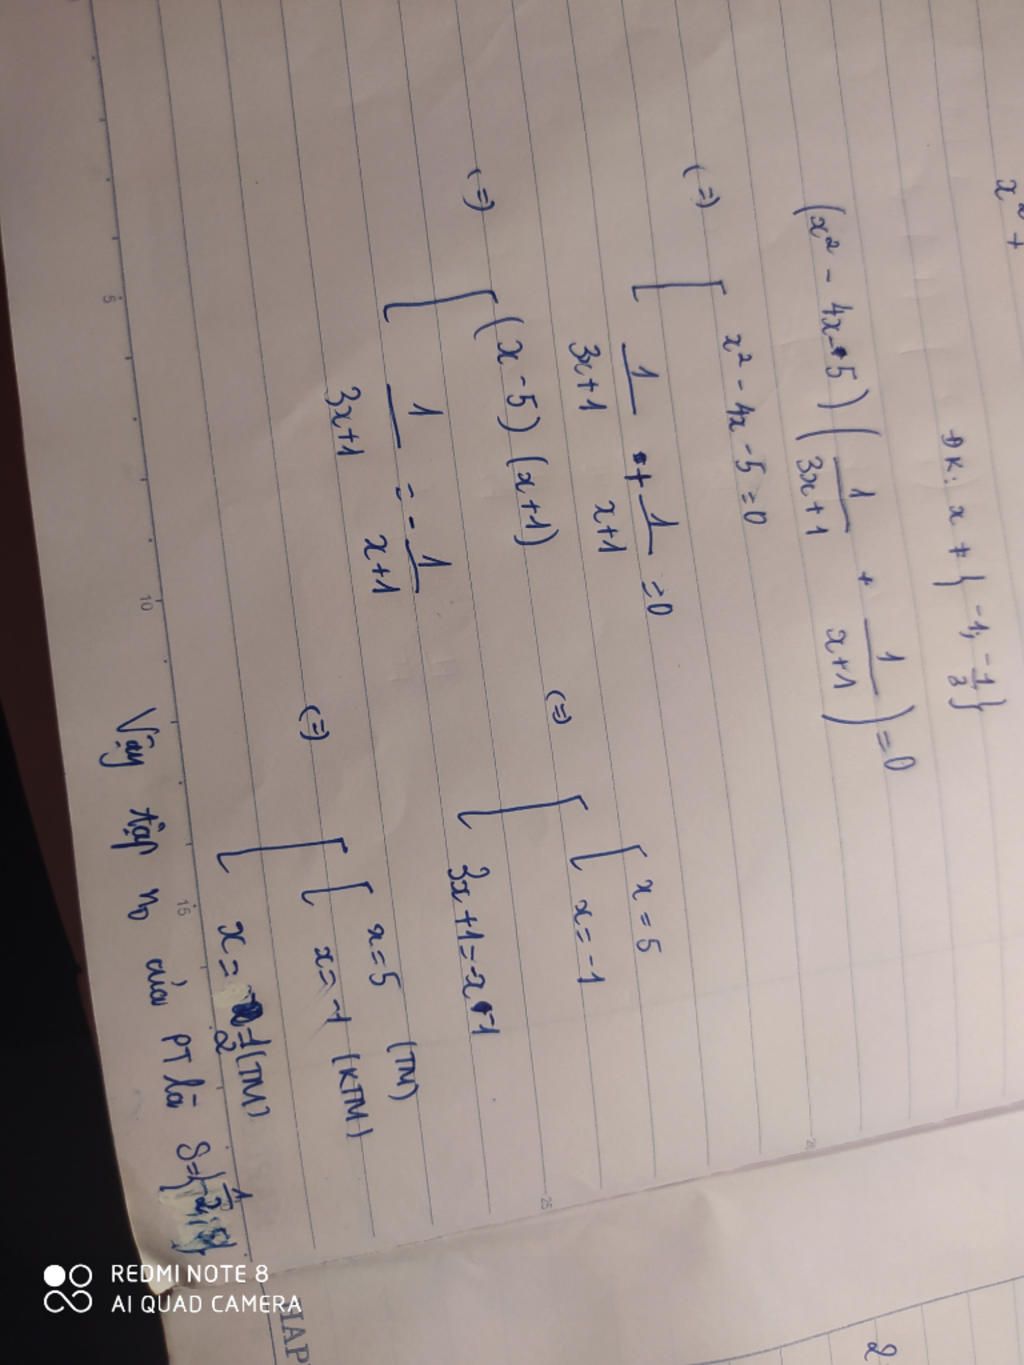 x² +
ĐK: x ≠ { -1; -1/3 }
(x² - 4x - 5) ( 1/(3x+1) + 1/(x+1) ) = 0
(=) [ x² - 4x - 5 = 0
1/(3x+1) + 1/(x+1) = 0
(=) [ (x - 5) (x+1)
1/(3x+1) = - 1/(x+1)
(=) [ [ x = 5
x = -1
3x+1 = -x -1
(=) [ [ x = 5 (TM)
x = -1 (KTM)
x = -1/2 (TM)
Vậy tập n0 của PT là S={-1/2; 5}
5
10
15
20
25
2
HAP
REDMI NOTE 8
AI QUAD CAMERA